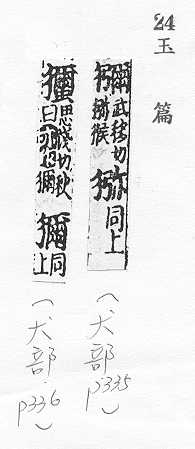 24 玉篇
獼武移切獼猴猕同上
(犬部 p335)
思淺切秋
同上
(犬部 p336)